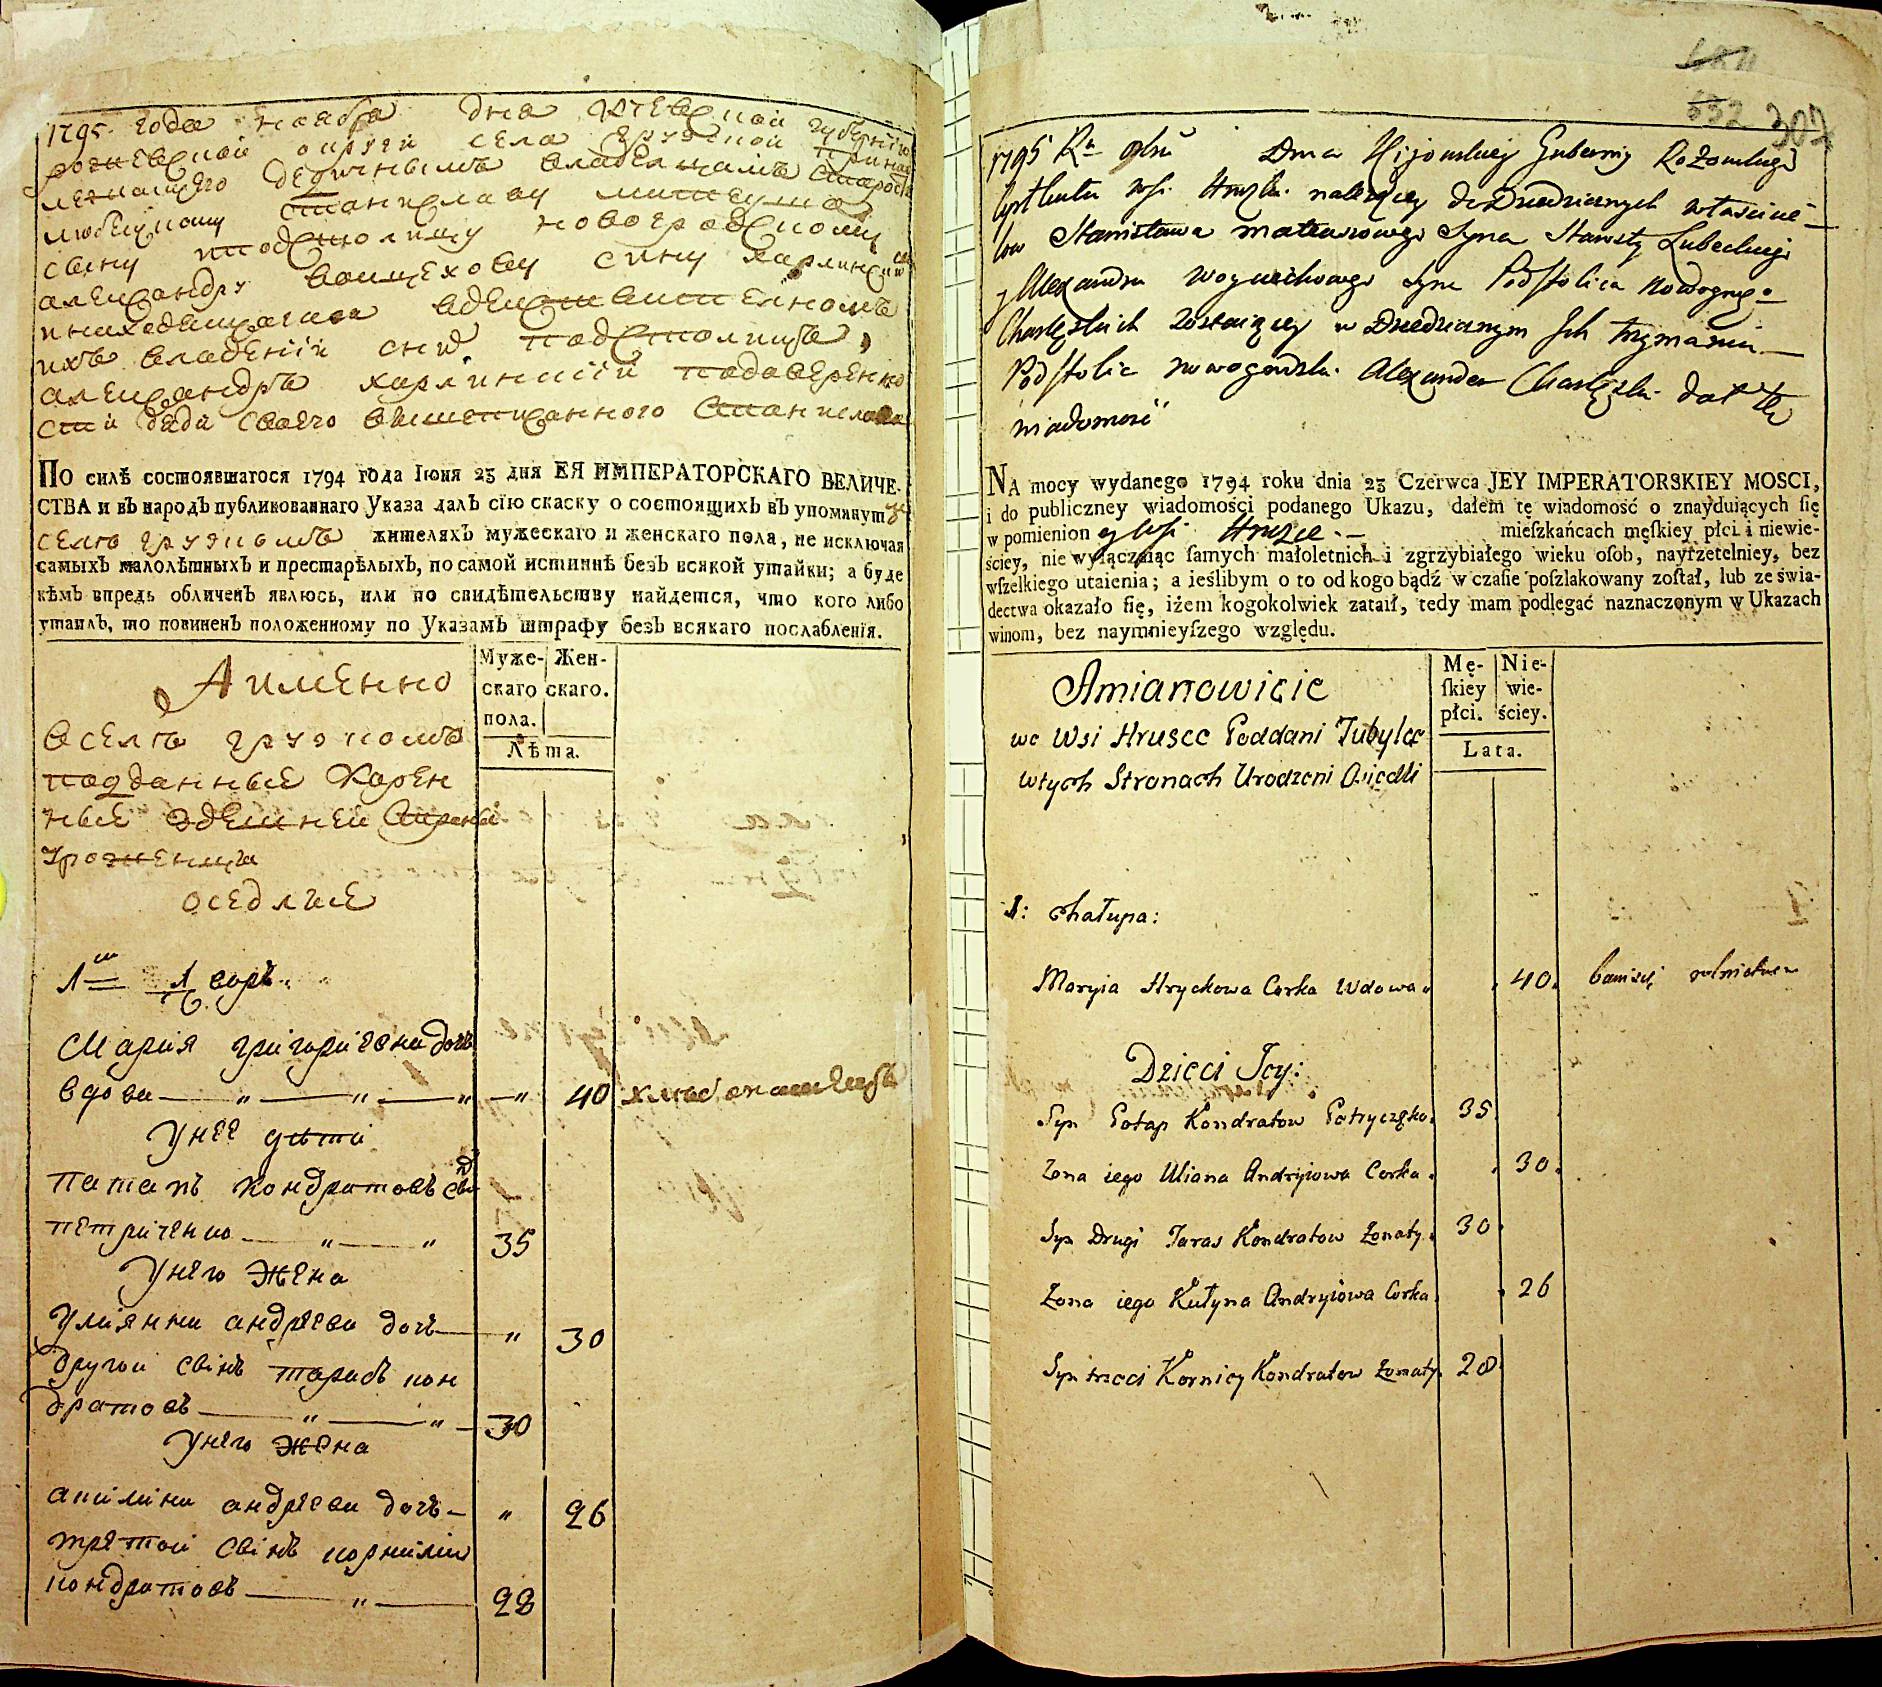 1795 года ноября дня Киевской губернии
ской округи села Грузкой принад
лежащего дедичнымъ владельцамъ старосте
любецкому Станиславу
сыну подстолицу новогродскому
александру Воицехову сину харлинскимъ
ихъ владении сию подстолица,
александръ харлинский
сти дяди своего вышеписанного Станислава
ПО силѣ состоявшагося 1794 года Іюня 23 дня ЕЯ ИМПЕРАТОРСКАГО ВЕЛИЧЕ-
СТВА и въ народъ публикованнаго Указа далъ сію скаску о состоящихъ въ упомянут
селѣ грузкомъ жителяхъ мужескаго и женскаго пола, не исключая
самыхъ малолѣтныхъ и престарѣлыхъ, по самой истиннѣ безъ всякой утайки; а буде
кѣмъ впредь обличенъ явлюсь, или по свидѣтельству найдется, что кого либо
утаилъ, то повиненъ положенному по Указамъ штрафу безъ всякаго послабленія.
Аименно
Муже- Жен-
скаго скаго.
пола.
Лѣта.
Вселѣ грузкомъ
подданные Корен
ные здешней Страны
Уроженци
оседлие
1 1 
Мария григориева дочь
вдова — „ — „ — „ — „ 40
Унее дети
патапъ кондратовъ
петриченко — „ — „ 35
Унего Жена
Улиянна андреева дочь — „ 30
другой синъ тарасъ кон
дратовъ — „ — „ — 30
Унего Жена
акилина андреева дочь — „ 26
третой синъ корнилий
кондратовъ — „ — 28
307
1795 Ru Dnia Kijowskiey Gubernij
wsi Hruzki należącey do Dziedzicznych właścicie-
low Stanisława Syna Starosty Lubeckiego
y Alexandra Woyciechowego Syna Podstolica Nowogrog=
Charlęskich zostaiącey w Dziedzicznym Ich trzymaniu
Podstolic Nowogrodzki Alexander Charlęski dał Tę
wiadomość
NA mocy wydanego 1794 roku dnia 23 Czerwca JEY IMPERATORSKIEY MOSCI,
i do publiczney wiadomości podanego Ukazu, dałem tę wiadomość o znayduiących ſię
w pomienion ey Wsi Hruzce.— mieſzkańcach męſkiey płci i niewie-
ściey, nie wyłączaiąc ſamych małoletnich i zgrzybiałego wieku oſob, nayrzetelniey, bez
wſzelkiego utaienia; a ieślibym o to od kogo bądź w czaſie poſzlakowany zoſtał, lub ze świa-
dectwa okazało ſię, iżem kogokolwiek zataił, tedy mam podlegać naznaczonym w Ukazach
winom, bez naymnieyſzego względu.
Amianowicie
Mę- Nie-
ſkiey wie-
płci. ściey.
Lata.
we Wsi Hrusce Poddani Tubylce
wtych Stronach Urodzeni Osiedli
1: chałupa:
Maryia Hryckowa Corka Wdowa „ 40. bawi się rolnictwem
Dzieci Jey:
Syn Potap Kondratow Potryczęko. 35.
Zona iego Uliana Andryiowa Corka. 30.
Syn Drugi Taras Kondratow Zonaty. 30.
Zona iego Kułyna Andryiowa Corka. 26
Syn trzeci Korniey Kondratow Zonaty. 28.